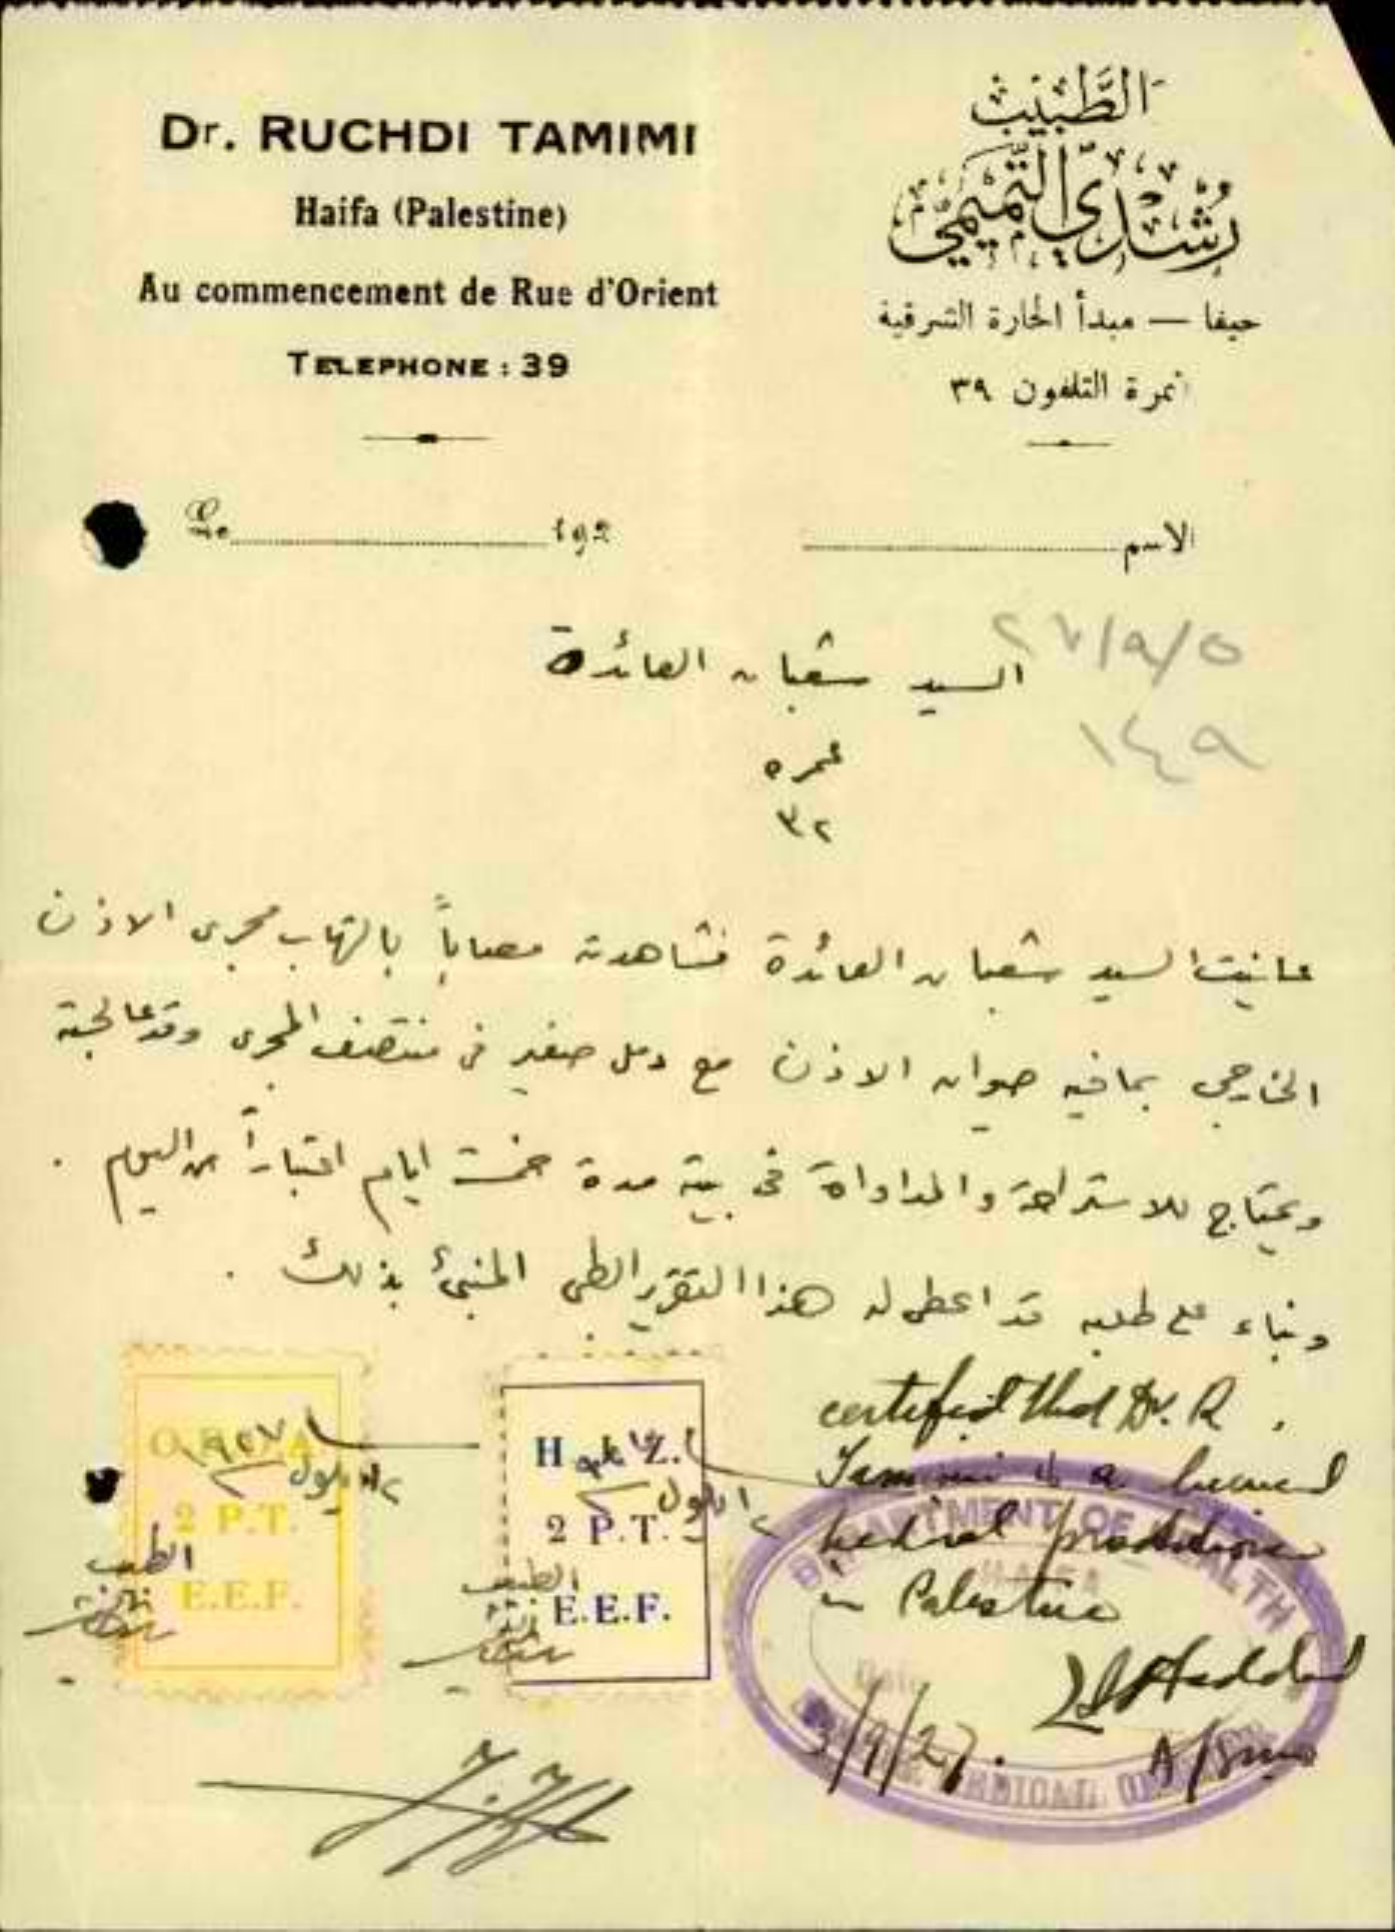 Dr. RUCHDI TAMIMI
Haifa (Palestine)
Au commencement de Rue d'Orient
TELEPHONE : 39
الطَّبيْب
رُشْدي التَّمِيْمِيّ
حيفا — مبدأ الحارة الشرقية
نمرة التلفون ٣٩
Le 192
الاسم
٢٧/٩/٥
١٤٩
السيد شعبان العائدة
عمره
٣٢
عاينت السيد شعبان العائدة فشاهدته مصاباً بالتهاب مجرى الاذن
الخارجي بما فيه صوان الاذن مع دمل صغير في منتصف المجرى وقد عالجته
ويحتاج للاستراحة والمداواة في بيته مدة خمسة ايام اعتباراً من اليوم .
وبناء على طلبه قد اعطي له هذا التقرير الطبي المنبئ بذلك .
O.
2 P.T.
E.E.F.
١٩٢٧
ايلول
الطبيب
H. Z.
2 P.T.
E.E.F.
ايلول
الطبيب
certified that Dr. R.
Tamimi is a licensed
medical practitioner
in Palestine
Haddad
3/9/27.
DEPARTMENT OF HEALTH
HAIFA
Date
MEDICAL